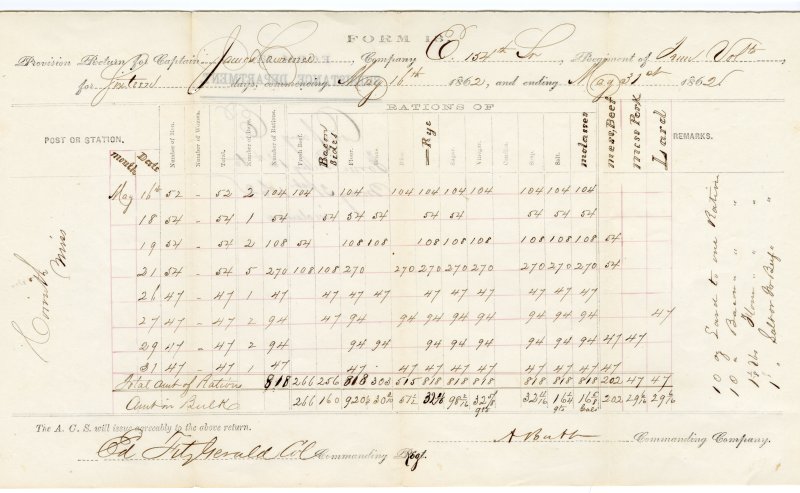 FORM 13.
Provision Return for Captain James Company E. 154th Sr, Regiment of Tenn Vols
for fifteen days, commencing May 16th 1862, and ending May 31st 1862
SUBSISTENCE DEPARTMENT
RATIONS OF
POST OR STATION. month Date Number of Men. Number of Women. Total. Number of Days. Number of Rations. Fresh Beef. Bacon Sides Flour. Rice. Rye Sugar. Vinegar. Candles. Soap. Salt. molasses mess Beef mess Pork Lard REMARKS.
May 16th 52 - 52 2 104 104 104 104 104 104 104 104 104 104
18 54 - 54 1 54 54 54 54 54 54 54 54
19 54 - 54 2 108 54 108 108 108 108 108 108 108 108 108 54
21 54 - 54 5 270 108 108 270 270 270 270 270 270 270 270 54
26 47 - 47 1 47 47 47 47 47 47 47 47 47 47
27 47 - 47 2 94 47 94 94 94 94 94 94 94 94 47
29 47 - 47 2 94 94 94 94 94 94 94 94 94 47 47
31 47 - 47 1 47 47 47 47 47 47 47 47 47 47
Total Amt of Rations 818 266 256 818 303 515 818 818 818 818 818 818 202 47 47
Amt in Bulk 266 160 202
Corinth Miss
10 oz Lard to one Ration
10 " Bacon " " "
1⅛ lbs Flour " " "
1 " Salt or Fr Beef "
The A. C. S. will issue agreeably to the above return.
Commanding Company.
Ed Fitzgerald Col Commanding Regt.